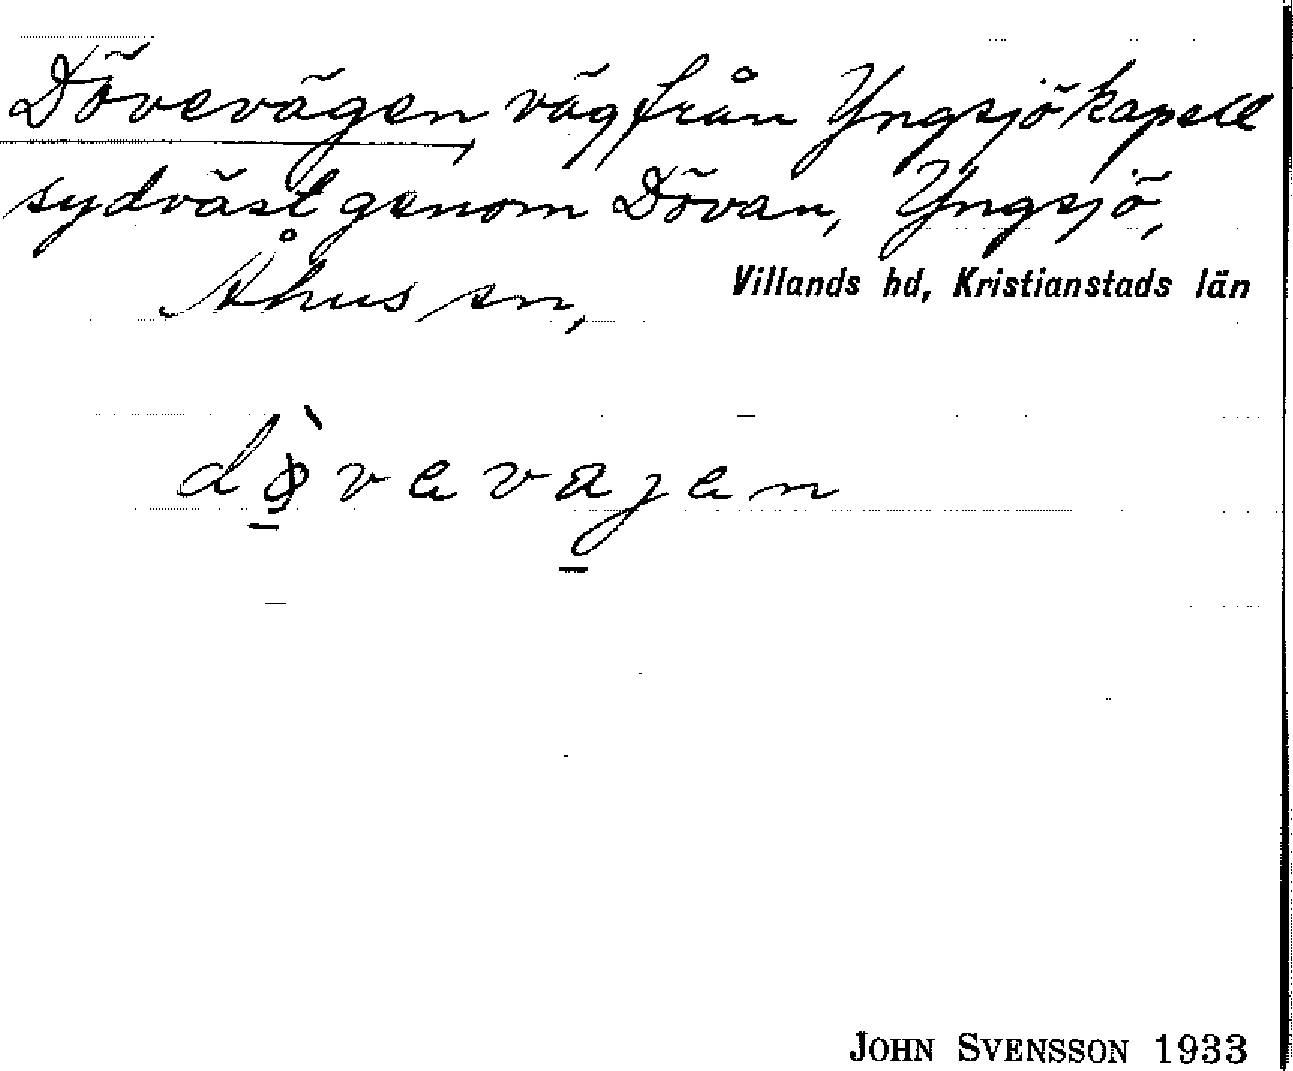 Dövevägen, väg från Yngsjö kapell
sydväst genom Dövan, Yngsjö,
Åhus sn, Villands hd, Kristianstads län
dø̀vevajen
JOHN SVENSSON 1933